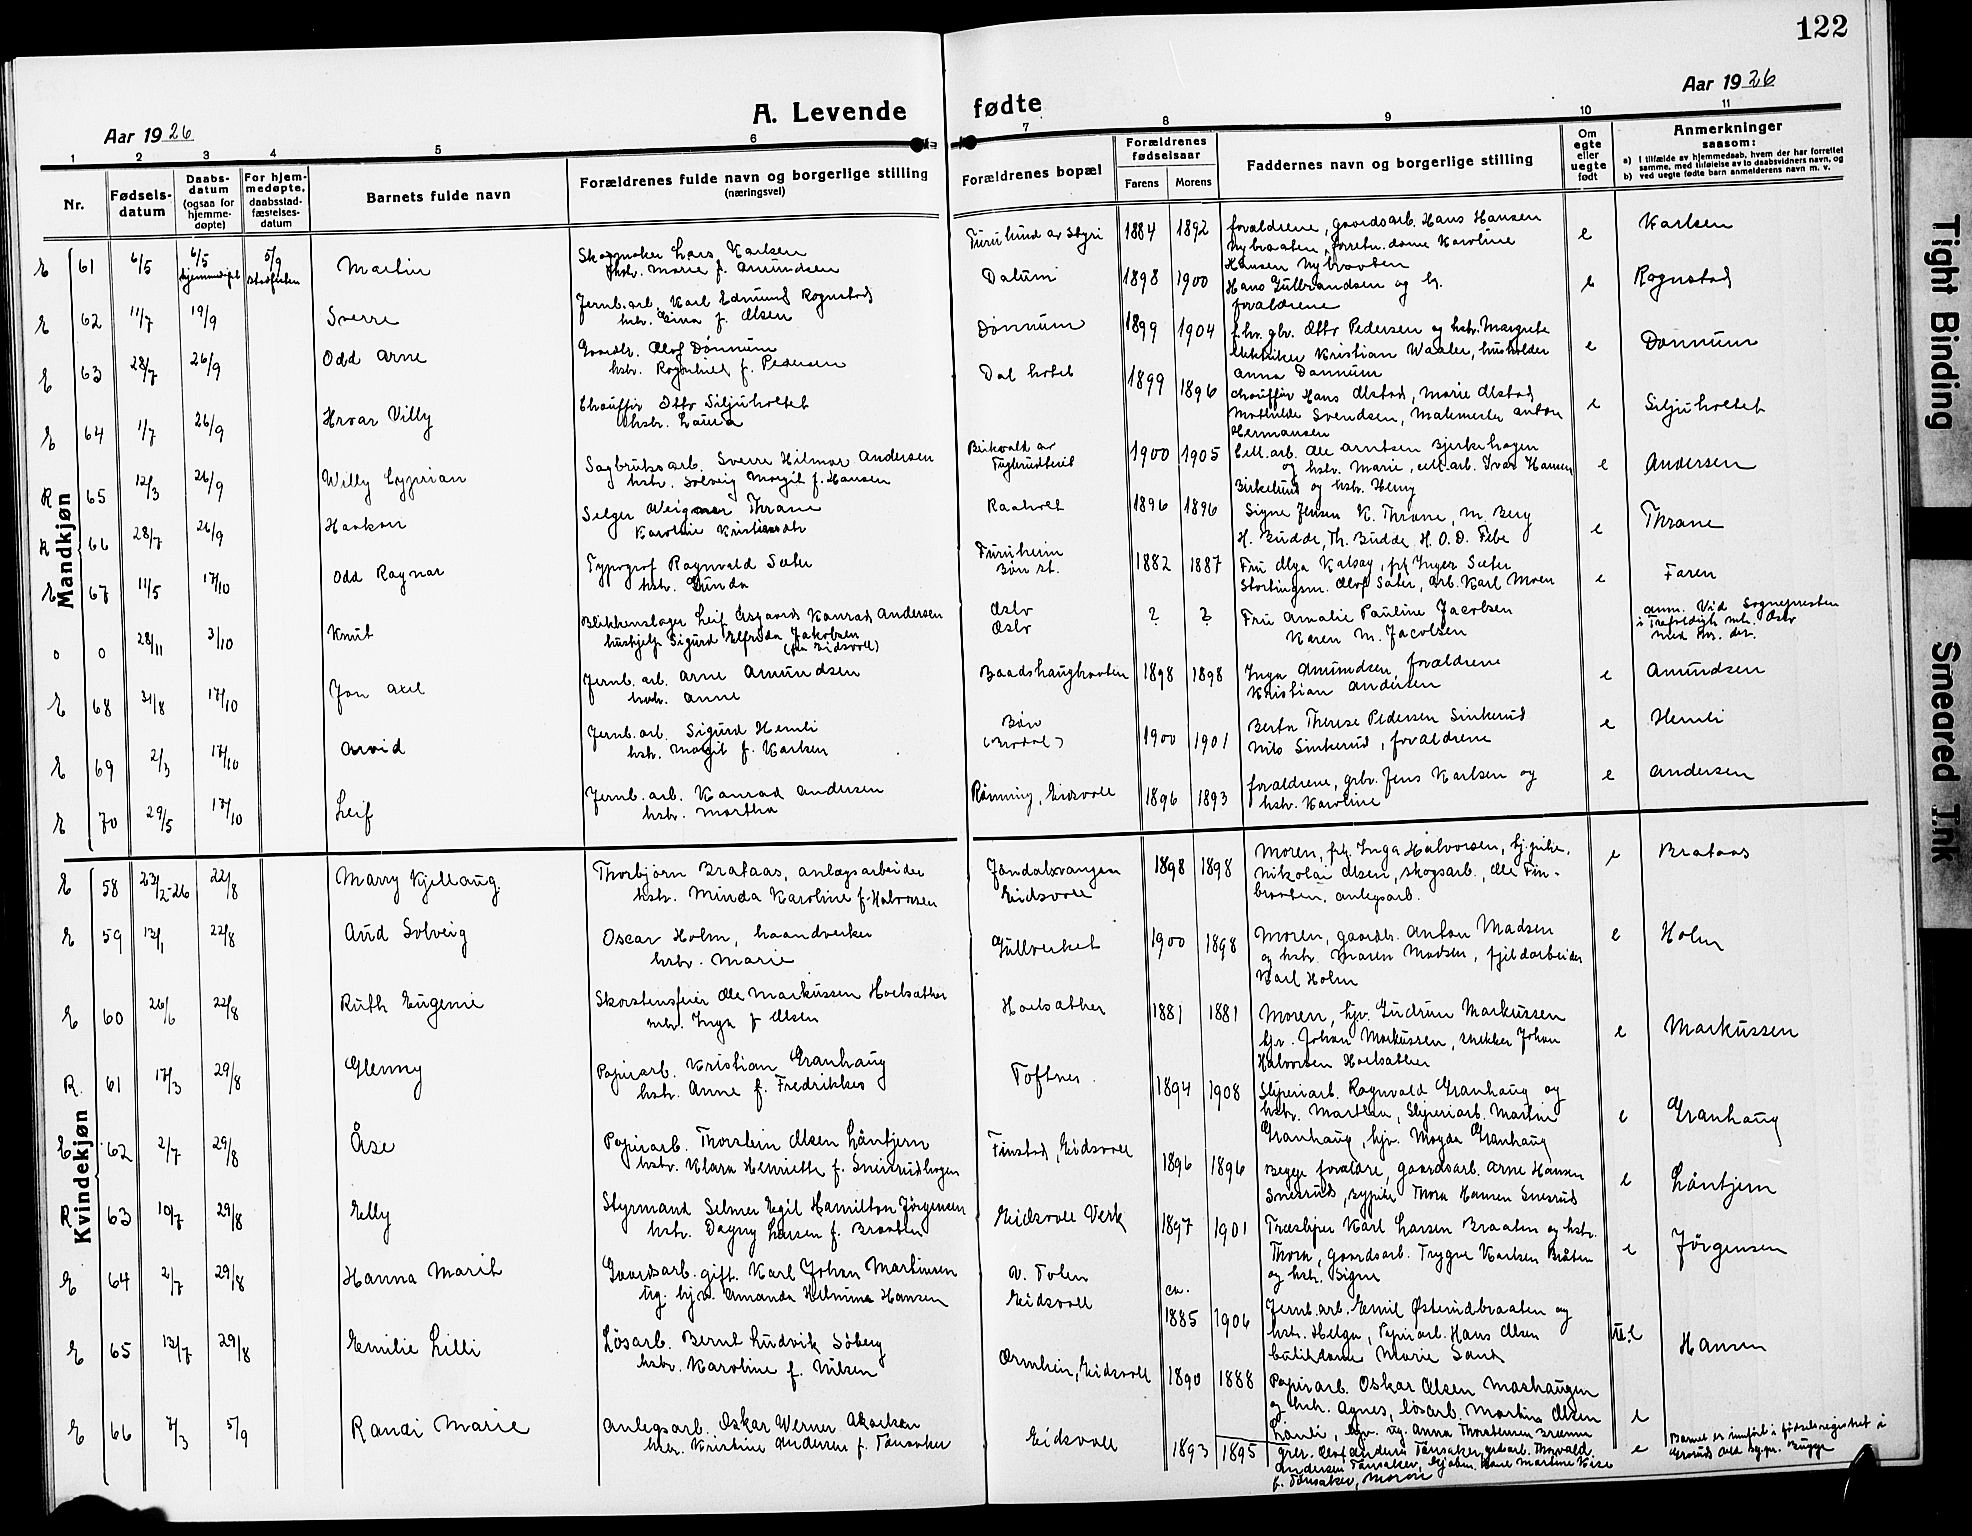 122
Aar 1926
Aar 1926
A. Levende fødte
1 2 3 4 5 6 7 8 9 10 11
Nr.
Fødsels-
datum
Daabs-
datum
(ogsaa for
hjemme-
døpte)
For hjem-
medøpte,
daabsstad-
fæstelses-
datum
Barnets fulde navn
Forældrenes fulde navn og borgerlige stilling
(næringsvei)
Forældrenes bopæl
Forældrenes
fødselsaar
Farens Morens
Faddernes navn og borgerlige stilling
Om
egte
eller
uegte
født
Anmerkninger
saasom:
a) I tilfælde av hjemmedaab, hvem der har forrettet
samme, med tilføielse av to daabsvidners navn, og
b) ved uegte fødte barn anmelderens navn m. v.
Mandkjøn
E 61 6/5 6/5 hjemmedøpt 5/9 Martin
Skomaker Lars Karlsen
hstr. Marie f. Amundsen
Furulund av Styri 1884 1892
forældrene, gaardsarb. Hans Hansen
Nybraaten, forretn.dame Karoline
Hansen Nybraaten
e Karlsen
E 62 11/7 19/9 Sverre
Jernb.arb. Karl Edmund Rognstad
hstr. Gina f. Olsen
Dalum 1898 1900
Hans Gulbrandsen og h.
forældrene
e Rognstad
E 63 28/7 26/9 Odd Arne
Gaardbr. Olof Dønnum
hstr. Rognhild f. Pedersen
Dønnum 1899 1904
f.hv. gbr. Otto Pedersen og hstr. Margrete
elektriker Kristian Waaler, husholder
Anna Dønnum
e Dønnum
E 64 1/7 26/9 Hroar Villy
Chauffør Otto Siljuholtet
hstr. Laura
Dal hotel 1899 1896
chauffør Hans Olstad, Marie Olstad
Mathilde Svendsen, Malemester Anton
Hermansen
e Siljuholtet
R 65 12/3 26/9 Willy Cyprian
Sagbruksarb. Sverre Hilmar Andersen
hstr. Solveig Margit f. Hansen
Birkvold av
1900 1905
Cell.arb. Ole Arntsen Bjerkehagen
og hstr. Marie, cell.arb. Ivar Hansen
Birkelund og hstr. Henny
e Andersen
R 66 28/7 26/9 Haakon
Selger Thrane
Karoline
Raaholt 1896 1896
Signe Jensen K. Thrane, M. Berg
H. Budde, Th. Budde, H. O. D. Febe
e Thrane
E 67 11/5 17/10 Odd Ragnar
Typograf Ragnvald Sæter
hstr. Gunda
Furuheim
Bøn st. 1882 1887
Fru Olga Kalsay, frk Inger Sæter
Stortingsm. Olof Sæter, arb. Karl Moen
e Faren
0 0 28/11 3/10 Knut
Blikkenslager Leif Asgaard Konrad Andersen
hushjelp Sigurd Elfrida Jakobsen
(fra Eidsvoll)
Oslo
Oslo ? ?
Fru Amalie Pauline Jacobsen
Karen M. Jacobsen
anm. Vid Sognepresten
i Trefoldigh. mh. Oslo
E 68 31/8 17/10 Jan Axel
Jernb. arb. Arne Amundsen
hstr. Anne
Baadshaugbraaten 1898 1898
Inga Amundsen, forældrene
Kristian Andersen
e Amundsen
E 69 2/3 17/10 Arvid
Jernb.arb. Sigurd Hemli
hstr. Margit f. Karlsen
Bøn
1900 1901
Berta Therese Pedersen Sinkerud
Nils Sinkerud, forældrene
e Hemli
E 70 29/5 17/10 Leif
Jernb. arb. Konrad Andersen
hstr. Martha
Rønning, Eidsvoll 1896 1893
forældrene, grbr. Jens Karlsen og
hstr. Karoline
e Andersen
Kvindekjøn
E 58 23/2-26 22/8 Marry Kjellaug.
Thorbjørn Brataas, anlægsarbeider
hstr. Minda Karoline f. Halvorsen
Jøndalsvangen
Eidsvoll 1898 1898
Moren, frk. Inga Halvorsen, hj.pike.
Nikolai Olsen, skogsarb., Ole Fin-
braaten, anlegsarb.
e Brataas
E 59 12/1 22/8 Aud Solveig
Oscar Holm, haandverker
hstr. Marie
Gullverket 1900 1898
Moren, gaardbr. Anton Madsen
og hstr. Maren Madsen, fjeldarbeider
Karl Holm
e Holm
E 60 26/6 22/8 Ruth Eugenie
Skorstensfeier Ole Markussen Hoelsæther
hstr. Inga f Olsen
Hoelsæther 1881 1881
Moren, hjv. Gudrun Markussen
hjv. Johan Markussen, snekker Johan
Halvorsen Hoelsæther
e Markussen
R. 61 17/3 29/8 Glenny
Papirarb. Kristian Granhaug
hstr. Anne f. Fredrikkes
Toftnes. 1894 1908
Sliperiarb. Ragnvald Granhaug og
hstr. Marthea, Sliperiarb. Martin
Granhaug, hjv. Magda Granhaug
e Granhaug
E 62 2/7 29/8 Åse
Papirarb. Thorstein Olsen Låntjern
hstr. Klara Henriette f. Sneisrudhagen
Finstad, Eidsvoll 1896 1896
Begge forældre, gaardsarb. Arne Hansen
Snesrud, sypike Thora Hansen Snesrud
e Låntjern
R 63 10/7 29/8 Elly
Styrmand Selmer Egil Hamilton Jørgensen
hstr. Dagny Larsen f. Braaten
Eidsvoll Verk 1897 1901
Træsliper Karl Larsen Braaten og hstr.
Thora, gaardsarb. Trygve Karlsen Bråten
og hstr. Signe
e Jørgensen
E 64 2/7 29/8 Hanna Marit
Gaardsarb. gift. Karl Johan Martinsen
ug. hjv. Amanda Helmine Hansen
v. Tolen
Eidsvoll ca. 1885 1906
Jernb.arb. Emil Østerudbraaten og
hstr. Helga, Papirarb. Hans Olsen
butikdame Marie Sand
Hansen
E 65 13/7 29/8 Emilie Lilli
Løsarb. Bernt Ludvik Søberg
hstr. Karoline f. Nilsen
Ormhein, Eidsvoll 1890 1888
Papirarb. Oskar Olsen Moshaugen
og hstr. Agnes, løsarb. Martin Olsen
hjv. ug. Anna Thorstensen
e
E 66 7/3 5/9 Randi Marie
Anlegsarb. Oskar Werner Akselsen
hstr. Kristine Andersen f. Tønsaker
Eidsvoll 1893 1895
grbr. Olof Andersen Tønsaker, grdarb. Thorvald
Andersen Tønsaker, Martine Kise
f. Tønsaker, moren
e
Barnet er innført i fødselsregistret i